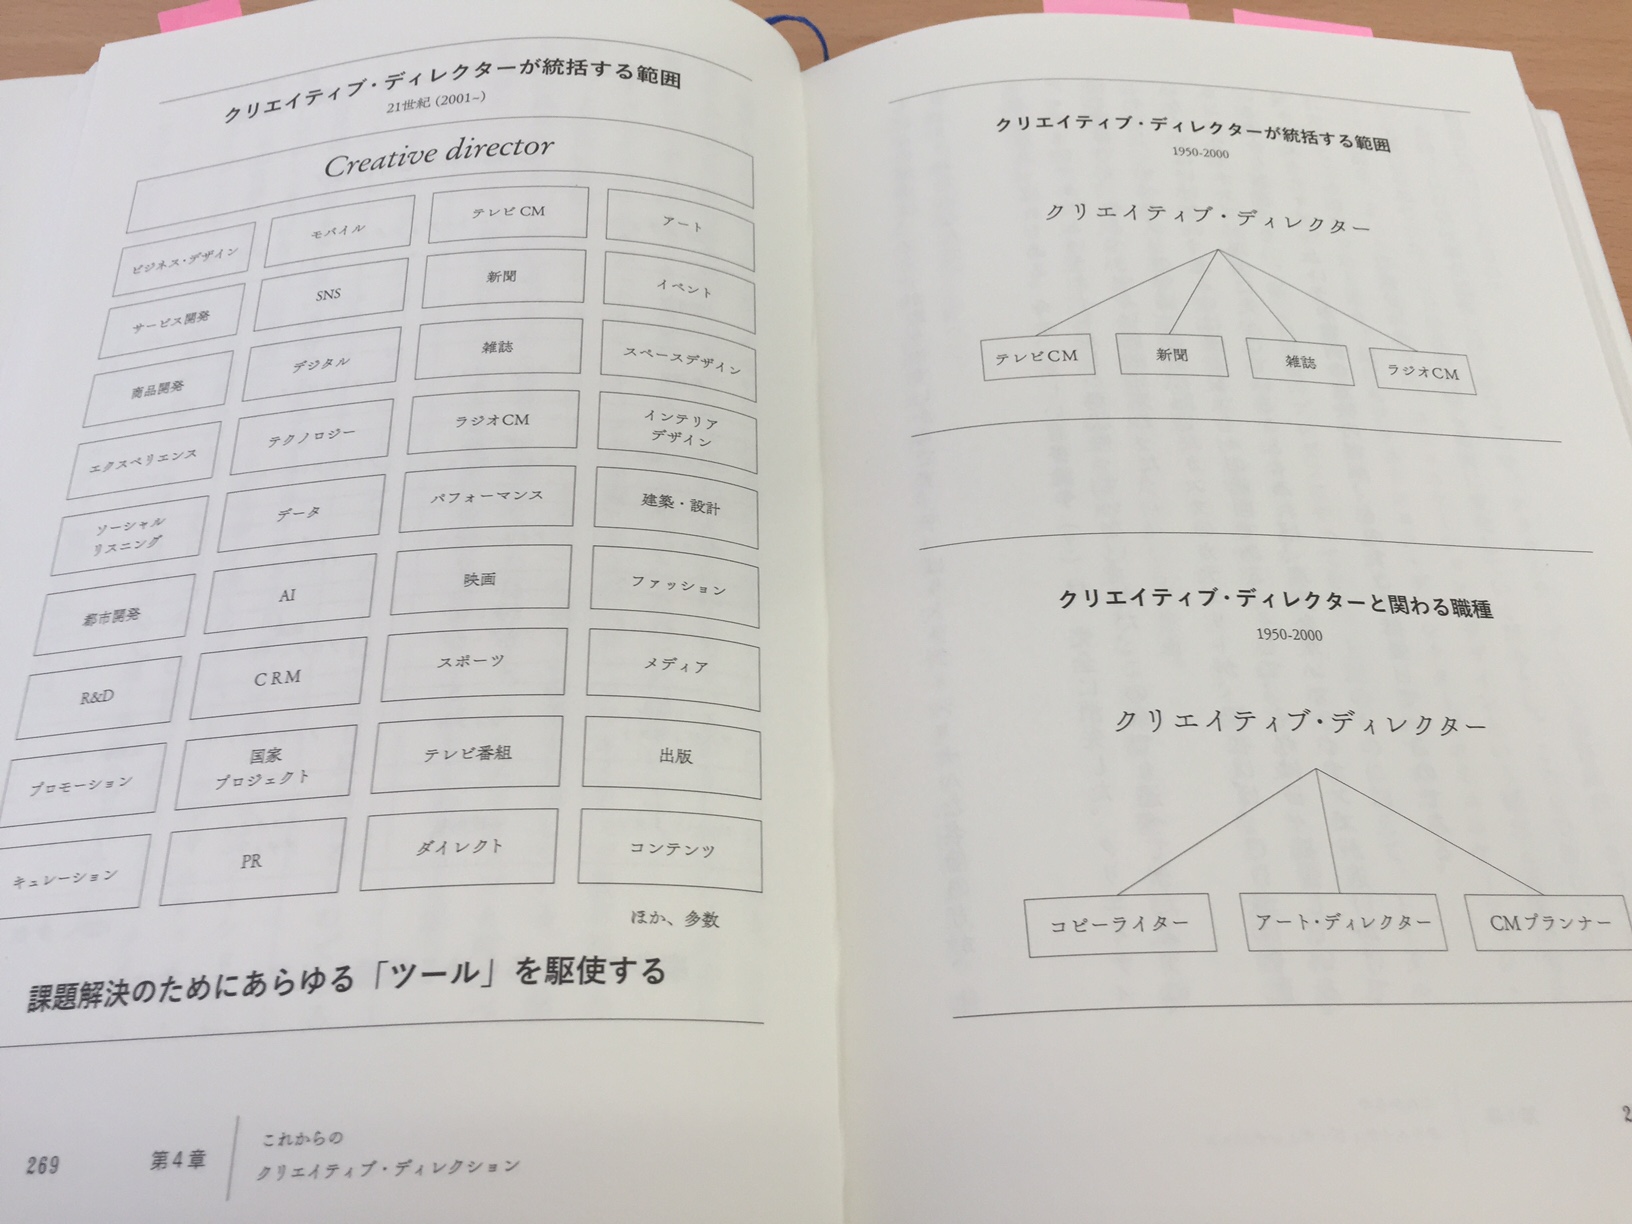 クリエイティブ・ディレクターが統括する範囲
21世紀 (2001–)
Creative director
ビジネス・デザイン
モバイル
テレビCM
アート
サービス開発
SNS
新聞
イベント
商品開発
デジタル
雑誌
スペースデザイン
エクスペリエンス
テクノロジー
ラジオCM
インテリア
デザイン
ソーシャル
リスニング
データ
パフォーマンス
建築・設計
都市開発
AI
映画
ファッション
R&D
CRM
スポーツ
メディア
プロモーション
国家
プロジェクト
テレビ番組
出版
キュレーション
PR
ダイレクト
コンテンツ
ほか、多数
課題解決のためにあらゆる「ツール」を駆使する
269
第4章
これからの
クリエイティブ・ディレクション
クリエイティブ・ディレクターが統括する範囲
1950-2000
クリエイティブ・ディレクター
テレビCM
新聞
雑誌
ラジオCM
クリエイティブ・ディレクターと関わる職種
1950-2000
クリエイティブ・ディレクター
コピーライター
アート・ディレクター
CMプランナー